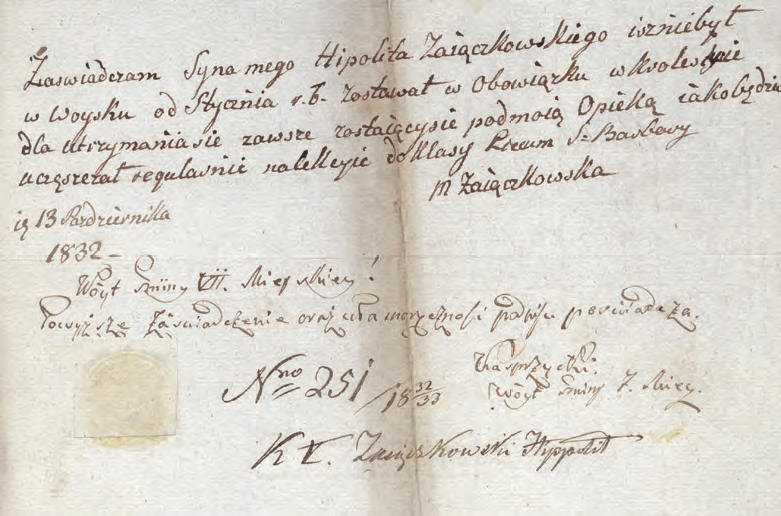 Zaswiadczam Syna mego Hipolita Zaiączkowskiego iż nie był
w Woysku od Stycznia r.b. zostawał w Obowiązku w Krolestwie
dla utrzymania sie zawsze zostaiący sie pod moią Opieką iako będzie
uczęszczał regularnie na lekcyie do klasy Liceum S. Barbary
M Zaiączkowska
13 Pazdziernika
1832 –
Wóyt Gminy VII. Mieyskiey!
Powyższe Zaświadczenie oraz własnoręczność podpisu poświadcza.
Kasprzycki.
Wóyt Gminy 7. Miey.
Nro 251 / 18 32/33
Kl. V. Zaiączkowski Hippolit